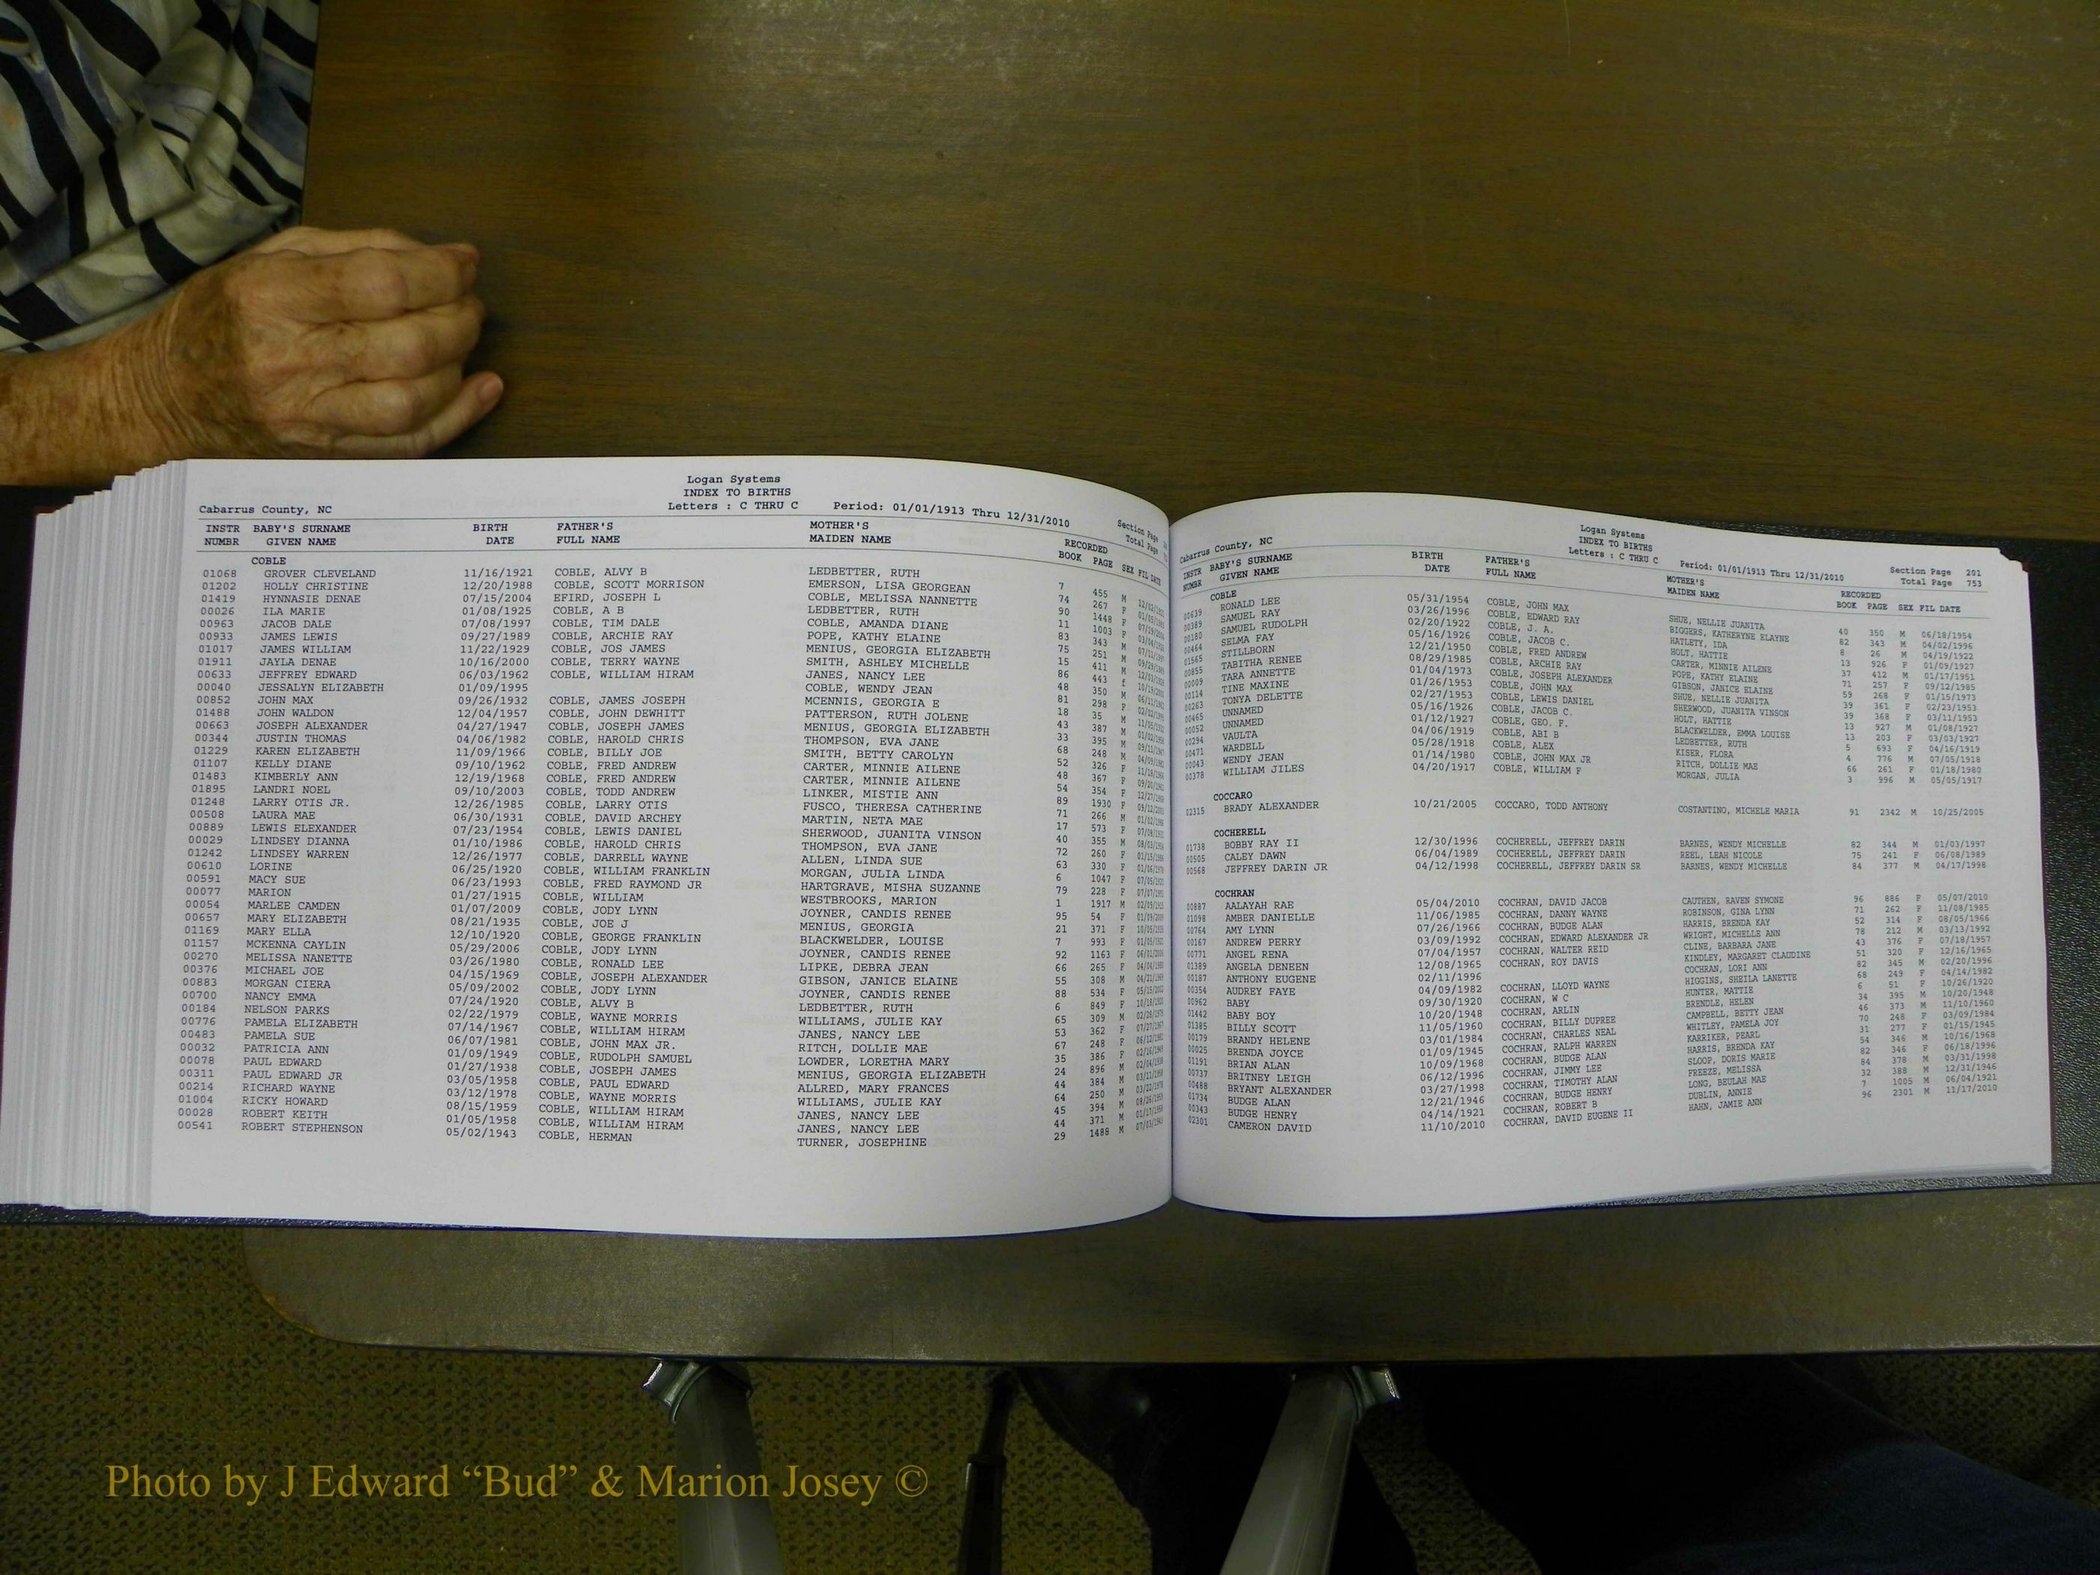 Logan Systems
INDEX TO BIRTHS
Cabarrus County, NC Letters : C THRU C Period: 01/01/1913 Thru 12/31/2010 Section Page
Total Page
INSTR BABY'S SURNAME BIRTH FATHER'S MOTHER'S RECORDED
NUMBR GIVEN NAME DATE FULL NAME MAIDEN NAME BOOK PAGE SEX FIL DATE
COBLE
01068 GROVER CLEVELAND 11/16/1921 COBLE, ALVY B LEDBETTER, RUTH 7 455 M
01202 HOLLY CHRISTINE 12/20/1988 COBLE, SCOTT MORRISON EMERSON, LISA GEORGEAN 74 267 F
01419 HYNNASIE DENAE 07/15/2004 EFIRD, JOSEPH L COBLE, MELISSA NANNETTE 90 1448 F
00026 ILA MARIE 01/08/1925 COBLE, A B LEDBETTER, RUTH 11 1003 F
00963 JACOB DALE 07/08/1997 COBLE, TIM DALE COBLE, AMANDA DIANE 83 343 M
00933 JAMES LEWIS 09/27/1989 COBLE, ARCHIE RAY POPE, KATHY ELAINE 75 251 M
01017 JAMES WILLIAM 11/22/1929 COBLE, JOS JAMES MENIUS, GEORGIA ELIZABETH 15 411 M
01911 JAYLA DENAE 10/16/2000 COBLE, TERRY WAYNE SMITH, ASHLEY MICHELLE 86 443 f
00633 JEFFREY EDWARD 06/03/1962 COBLE, WILLIAM HIRAM JANES, NANCY LEE 48 350 M
00040 JESSALYN ELIZABETH 01/09/1995 COBLE, WENDY JEAN 81 298 F
00852 JOHN MAX 09/26/1932 COBLE, JAMES JOSEPH MCENNIS, GEORGIA E 18 35 M
01488 JOHN WALDON 12/04/1957 COBLE, JOHN DEWHITT PATTERSON, RUTH JOLENE 43 387 M
00663 JOSEPH ALEXANDER 04/27/1947 COBLE, JOSEPH JAMES MENIUS, GEORGIA ELIZABETH 33 395 M
00344 JUSTIN THOMAS 04/06/1982 COBLE, HAROLD CHRIS THOMPSON, EVA JANE 68 248 M
01229 KAREN ELIZABETH 11/09/1966 COBLE, BILLY JOE SMITH, BETTY CAROLYN 52 326 F
01107 KELLY DIANE 09/10/1962 COBLE, FRED ANDREW CARTER, MINNIE AILENE 48 367 F
01483 KIMBERLY ANN 12/19/1968 COBLE, FRED ANDREW CARTER, MINNIE AILENE 54 354 F
01895 LANDRI NOEL 09/10/2003 COBLE, TODD ANDREW LINKER, MISTIE ANN 89 1930 F
01248 LARRY OTIS JR. 12/26/1985 COBLE, LARRY OTIS FUSCO, THERESA CATHERINE 71 266 M
00508 LAURA MAE 06/30/1931 COBLE, DAVID ARCHEY MARTIN, NETA MAE 17 573 F
00889 LEWIS ELEXANDER 07/23/1954 COBLE, LEWIS DANIEL SHERWOOD, JUANITA VINSON 40 355 M
00029 LINDSEY DIANNA 01/10/1986 COBLE, HAROLD CHRIS THOMPSON, EVA JANE 72 260 F
01242 LINDSEY WARREN 12/26/1977 COBLE, DARRELL WAYNE ALLEN, LINDA SUE 63 330 F
00610 LORINE 06/25/1920 COBLE, WILLIAM FRANKLIN MORGAN, JULIA LINDA 6 1047 F
00591 MACY SUE 06/23/1993 COBLE, FRED RAYMOND JR HARTGRAVE, MISHA SUZANNE 79 228 F
00077 MARION 01/27/1915 COBLE, WILLIAM WESTBROOKS, MARION 1 1917 M
00054 MARLEE CAMDEN 01/07/2009 COBLE, JODY LYNN JOYNER, CANDIS RENEE 95 54 F
00657 MARY ELIZABETH 08/21/1935 COBLE, JOE J MENIUS, GEORGIA 21 371 F
01169 MARY ELLA 12/10/1920 COBLE, GEORGE FRANKLIN BLACKWELDER, LOUISE 7 993 F
01157 MCKENNA CAYLIN 05/29/2006 COBLE, JODY LYNN JOYNER, CANDIS RENEE 92 1163 F
00270 MELISSA NANETTE 03/26/1980 COBLE, RONALD LEE LIPKE, DEBRA JEAN 66 265 F
00376 MICHAEL JOE 04/15/1969 COBLE, JOSEPH ALEXANDER GIBSON, JANICE ELAINE 55 308 M
00883 MORGAN CIERA 05/09/2002 COBLE, JODY LYNN JOYNER, CANDIS RENEE 88 534 F
00700 NANCY EMMA 07/24/1920 COBLE, ALVY B LEDBETTER, RUTH 6 849 F
00184 NELSON PARKS 02/22/1979 COBLE, WAYNE MORRIS WILLIAMS, JULIE KAY 65 309 M
00776 PAMELA ELIZABETH 07/14/1967 COBLE, WILLIAM HIRAM JANES, NANCY LEE 53 362 F
00483 PAMELA SUE 06/07/1981 COBLE, JOHN MAX JR. RITCH, DOLLIE MAE 67 248 F
00032 PATRICIA ANN 01/09/1949 COBLE, RUDOLPH SAMUEL LOWDER, LORETHA MARY 35 386 F
00078 PAUL EDWARD 01/27/1938 COBLE, JOSEPH JAMES MENIUS, GEORGIA ELIZABETH 24 896 M
00311 PAUL EDWARD JR 03/05/1958 COBLE, PAUL EDWARD ALLRED, MARY FRANCES 44 384 M
00214 RICHARD WAYNE 03/12/1978 COBLE, WAYNE MORRIS WILLIAMS, JULIE KAY 64 250 M
01004 RICKY HOWARD 08/15/1959 COBLE, WILLIAM HIRAM JANES, NANCY LEE 45 394 M
00028 ROBERT KEITH 01/05/1958 COBLE, WILLIAM HIRAM JANES, NANCY LEE 44 371 M
00541 ROBERT STEPHENSON 05/02/1943 COBLE, HERMAN TURNER, JOSEPHINE 29 1488 M
Logan Systems
INDEX TO BIRTHS
Cabarrus County, NC Letters : C THRU C Period: 01/01/1913 Thru 12/31/2010 Section Page 201
Total Page 753
INSTR BABY'S SURNAME BIRTH FATHER'S MOTHER'S RECORDED
NUMBR GIVEN NAME DATE FULL NAME MAIDEN NAME BOOK PAGE SEX FIL DATE
COBLE
00639 RONALD LEE 05/31/1954 COBLE, JOHN MAX SHUE, NELLIE JUANITA 40 350 M 06/18/1954
00389 SAMUEL RAY 03/26/1996 COBLE, EDWARD RAY BIGGERS, KATHERYNE ELAYNE 82 343 M 04/02/1996
00180 SAMUEL RUDOLPH 02/20/1922 COBLE, J. A. HATLETY, IDA 8 26 M 04/19/1922
00464 SELMA FAY 05/16/1926 COBLE, JACOB C. HOLT, HATTIE 13 926 F 01/09/1927
01565 STILLBORN 12/21/1950 COBLE, FRED ANDREW CARTER, MINNIE AILENE 37 412 M 01/17/1951
00855 TABITHA RENEE 08/29/1985 COBLE, ARCHIE RAY POPE, KATHY ELAINE 71 257 F 09/12/1985
00009 TARA ANNETTE 01/04/1973 COBLE, JOSEPH ALEXANDER GIBSON, JANICE ELAINE 59 268 F 01/15/1973
00114 TINE MAXINE 01/26/1953 COBLE, JOHN MAX SHUE, NELLIE JUANITA 39 361 F 02/23/1953
00263 TONYA DELETTE 02/27/1953 COBLE, LEWIS DANIEL SHERWOOD, JUANITA VINSON 39 368 F 03/11/1953
00465 UNNAMED 05/16/1926 COBLE, JACOB C. HOLT, HATTIE 13 927 M 01/08/1927
00052 UNNAMED 01/12/1927 COBLE, GEO. F. BLACKWELDER, EMMA LOUISE 13 203 F 03/03/1927
00294 VAULTA 04/06/1919 COBLE, ABI B LEDBETTER, RUTH 5 693 F 04/16/1919
00471 WARDELL 05/28/1918 COBLE, ALEX KISER, FLORA 4 776 M 07/05/1918
00043 WENDY JEAN 01/14/1980 COBLE, JOHN MAX JR RITCH, DOLLIE MAE 66 261 F 01/18/1980
00378 WILLIAM JILES 04/20/1917 COBLE, WILLIAM F MORGAN, JULIA 3 996 M 05/05/1917
COCCARO
02315 BRADY ALEXANDER 10/21/2005 COCCARO, TODD ANTHONY COSTANTINO, MICHELE MARIA 91 2342 M 10/25/2005
COCHERELL
01738 BOBBY RAY II 12/30/1996 COCHERELL, JEFFREY DARIN BARNES, WENDY MICHELLE 82 344 M 01/03/1997
00505 CALEY DAWN 06/04/1989 COCHERELL, JEFFREY DARIN REEL, LEAH NICOLE 75 241 F 06/08/1989
00568 JEFFREY DARIN JR 04/12/1998 COCHERELL, JEFFREY DARIN SR BARNES, WENDY MICHELLE 84 377 M 04/17/1998
COCHRAN
00887 AALAYAH RAE 05/04/2010 COCHRAN, DAVID JACOB CAUTHEN, RAVEN SYMONE 96 886 F 05/07/2010
01098 AMBER DANIELLE 11/06/1985 COCHRAN, DANNY WAYNE ROBINSON, GINA LYNN 71 262 F 11/08/1985
00764 AMY LYNN 07/26/1966 COCHRAN, BUDGE ALAN HARRIS, BRENDA KAY 52 314 F 08/05/1966
00167 ANDREW PERRY 03/09/1992 COCHRAN, EDWARD ALEXANDER JR WRIGHT, MICHELLE ANN 78 212 M 03/13/1992
00771 ANGEL RENA 07/04/1957 COCHRAN, WALTER REID CLINE, BARBARA JANE 43 376 F 07/18/1957
01389 ANGELA DENEEN 12/08/1965 COCHRAN, ROY DAVIS KINDLEY, MARGARET CLAUDINE 51 320 F 12/16/1965
00187 ANTHONY EUGENE 02/11/1996 COCHRAN, LORI ANN 82 345 M 02/20/1996
00354 AUDREY FAYE 04/09/1982 COCHRAN, LLOYD WAYNE HIGGINS, SHEILA LANETTE 68 249 F 04/14/1982
00962 BABY 09/30/1920 COCHRAN, W C HUNTER, MATTIE 6 51 F 10/26/1920
01442 BABY BOY 10/20/1948 COCHRAN, ARLIN BRENDLE, HELEN 34 395 M 10/20/1948
01385 BILLY SCOTT 11/05/1960 COCHRAN, BILLY DUPREE CAMPBELL, BETTY JEAN 46 373 M 11/10/1960
00179 BRANDY HELENE 03/01/1984 COCHRAN, CHARLES NEAL WHITLEY, PAMELA JOY 70 248 F 03/09/1984
00025 BRENDA JOYCE 01/09/1945 COCHRAN, RALPH WARREN KARRIKER, PEARL 31 277 F 01/15/1945
01191 BRIAN ALAN 10/09/1968 COCHRAN, BUDGE ALAN HARRIS, BRENDA KAY 54 346 M 10/16/1968
00737 BRITNEY LEIGH 06/12/1996 COCHRAN, JIMMY LEE SLOOP, DORIS MARIE 82 346 F 06/18/1996
00488 BRYANT ALEXANDER 03/27/1998 COCHRAN, TIMOTHY ALAN FREEZE, MELISSA 84 378 M 03/31/1998
01734 BUDGE ALAN 12/21/1946 COCHRAN, BUDGE HENRY LONG, BEULAH MAE 32 388 M 12/31/1946
00343 BUDGE HENRY 04/14/1921 COCHRAN, ROBERT B DUBLIN, ANNIE 7 1005 M 06/04/1921
02301 CAMERON DAVID 11/10/2010 COCHRAN, DAVID EUGENE II HAHN, JAMIE ANN 96 2301 M 11/17/2010
Photo by J Edward “Bud” & Marion Josey ©